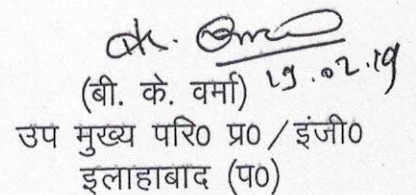 19.02.19
(बी. के. वर्मा)
उप मुख्य परि0 प्र0 / इंजी0
इलाहाबाद (प0)